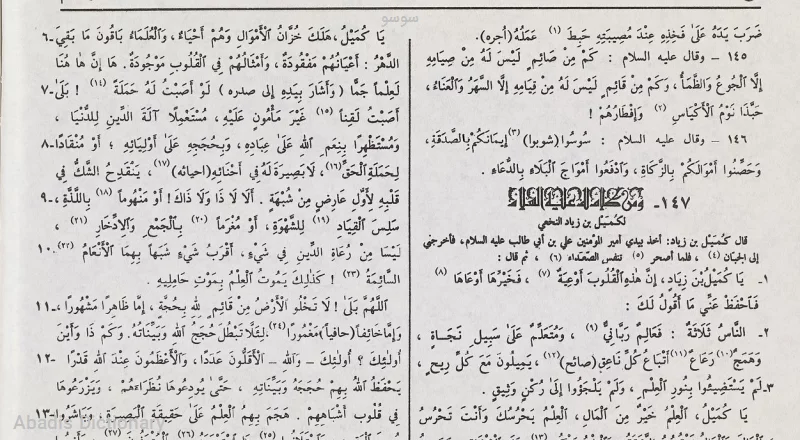 ضَرَبَ يَدَهُ عَلَىٰ فَخِذِهِ عِنْدَ مُصِيبَتِهِ حَبِطَ (١) عَمَلُهُ(أجره).
١٤٥ – وقال عليه السلام : كَمْ مِنْ صَائِمٍ لَيْسَ لَهُ مِنْ صِيَامِهِ
إِلَّا ٱلْجُوعُ وَٱلظَّمَأُ، وَكَمْ مِنْ قَائِمٍ لَيْسَ لَهُ مِنْ قِيَامِهِ إِلَّا السَّهَرُ وَٱلْعَنَاءُ،
حَبَّذَا نَوْمُ ٱلْأَكْيَاسِ (٢) وَإِفْطَارُهُمْ !
١٤٦ – وقال عليه السلام : سُوسُوا(شوبوا) (٣)إِيمَانَكُمْ بِالصَّدَقَةِ،
وَحَصِّنُوا أَمْوَالَكُمْ بِالزَّكَاةِ، وَٱدْفَعُوا أَمْوَاجَ ٱلْبَلَاءِ بِالدُّعَاءِ .
١٤٧-
لكُمَيْل بن زياد النخعي
قال كُمَيْل بن زياد: أخذ بيدي أمير المؤمنين علي بن أبي طالب عليه السلام، فأخرجني
إلى الجبّان (٤) ، فلما أصحر (٥) تنفس الصُّعَداء (٦) ، ثم قال :
١- يَا كُمَيْلُ بْنَ زِيَادٍ، إِنَّ هٰذِهِ ٱلْقُلُوبَ أَوْعِيَةٌ (٧) ، فَخَيْرُهَا أَوْعَاهَا (٨)
فَٱحْفَظْ عَنِّي مَا أَقُولُ لَكَ :
٢- النَّاسُ ثَلَاثَةٌ : فَعَالِمٌ رَبَّانِيٌّ (٩) ، وَمُتَعَلِّمٌ عَلَىٰ سَبِيلِ نَجَاةٍ ،
وَهَمَجٌ (١٠) رَعَاعٌ (١١) أَتْبَاعُ كُلِّ نَاعِقٍ(صائح) (١٢)، يَمِيلُونَ مَعَ كُلِّ رِيحٍ ،
٣-لَمْ يَسْتَضِيئُوا بِنُورِ ٱلْعِلْمِ، وَلَمْ يَلْجَؤُوا إِلَىٰ رُكْنٍ وَثِيقٍ .
يَا كُمَيْلُ، ٱلْعِلْمُ خَيْرٌ مِنَ ٱلْمَالِ، ٱلْعِلْمُ يَحْرُسُكَ وَأَنْتَ تَحْرُسُ
يَا كُمَيْلُ، هَلَكَ خُزَّانُ ٱلْأَمْوَالِ وَهُمْ أَحْيَاءٌ، وَٱلْعُلَمَاءُ بَاقُونَ مَا بَقِيَ ٦-
الدَّهْرُ : أَعْيَانُهُمْ مَفْقُودَةٌ، وَأَمْثَالُهُمْ فِي ٱلْقُلُوبِ مَوْجُودَةٌ. هَا إِنَّ هَا هُنَا
لَعِلْماً جَمًّا (وَأَشَارَ بِيَدِهِ إِلى صدره ) لَوْ أَصَبْتُ لَهُ حَمَلَةً (١٤) ! بَلَىٰ ٧-
أَصَبْتُ لَقِناً (١٥) غَيْرَ مَأْمُونٍ عَلَيْهِ، مُسْتَعْمِلًا آلَةَ الدِّينِ لِلدُّنْيَا ،
وَمُسْتَظْهِرًا بِنِعَمِ اللهِ عَلَىٰ عِبَادِهِ، وَبِحُجَجِهِ عَلَىٰ أَوْلِيَائِهِ ؛ أَوْ مُنْقَادًا ٨-
لِحَمَلَةِ ٱلْحَقِّ (١٦)، لَا بَصِيرَةَ لَهُ فِي أَحْنَائِهِ(احيائه) (١٧)، يَنْقَدِحُ الشَّكُّ فِي
قَلْبِهِ لِأَوَّلِ عَارِضٍ مِنْ شُبْهَةٍ . أَلَا لَا ذَا وَلَا ذَاكَ! أَوْ مَنْهُوماً (١٨) بِاللَّذَّةِ، ٩-
سَلِسَ ٱلْقِيَادِ (١٩) لِلشَّهْوَةِ، أَوْ مُغْرَماً (٢٠) بِٱلْجَمْعِ وَٱلِادِّخَارِ (٢١) ،
لَيْسَا مِنْ رُعَاةِ الدِّينِ فِي شَيْءٍ، أَقْرَبُ شَيْءٍ شَبَهاً بِهِمَا ٱلْأَنْعَامُ (٢٢) ١٠-
السَّائِمَةُ (٢٣) ! كَذٰلِكَ يَمُوتُ ٱلْعِلْمُ بِمَوْتِ حَامِلِيهِ .
اللَّهُمَّ بَلَىٰ ! لَا تَخْلُو ٱلْأَرْضُ مِنْ قَائِمٍ لِلهِ بِحُجَّةٍ، إِمَّا ظَاهِرًا مَشْهُورًا، ١١-
وَإِمَّا خَائِفاً(حافياً) مَغْمُورًا (٢٤)، لِئَلَّا تَبْطُلَ حُجَجُ اللهِ وَبَيِّنَاتُهُ. وَكَمْ ذَا وَأَيْنَ
أُولٰئِكَ ؟ أُولٰئِكَ – وَاللهِ – ٱلْأَقَلُّونَ عَدَدًا، وَٱلْأَعْظَمُونَ عِنْدَ اللهِ قَدْرًا . ١٢-
يَحْفَظُ اللهُ بِهِمْ حُجَجَهُ وَبَيِّنَاتِهِ ، حَتَّىٰ يُودِعُوهَا نُظَرَاءَهُمْ ، وَيَزْرَعُوهَا
فِي قُلُوبِ أَشْبَاهِهِمْ . هَجَمَ بِهِمُ ٱلْعِلْمُ عَلَىٰ حَقِيقَةِ ٱلْبَصِيرَةِ، وَبَاشَرُوا ١٣-
سوسو
Abadis Dictionary